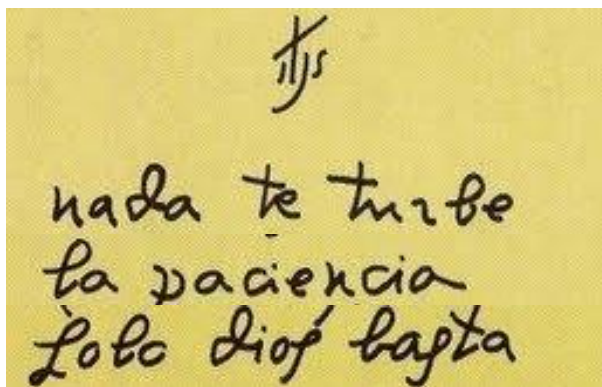 IHS
nada te turbe
la paciencia
solo dios basta